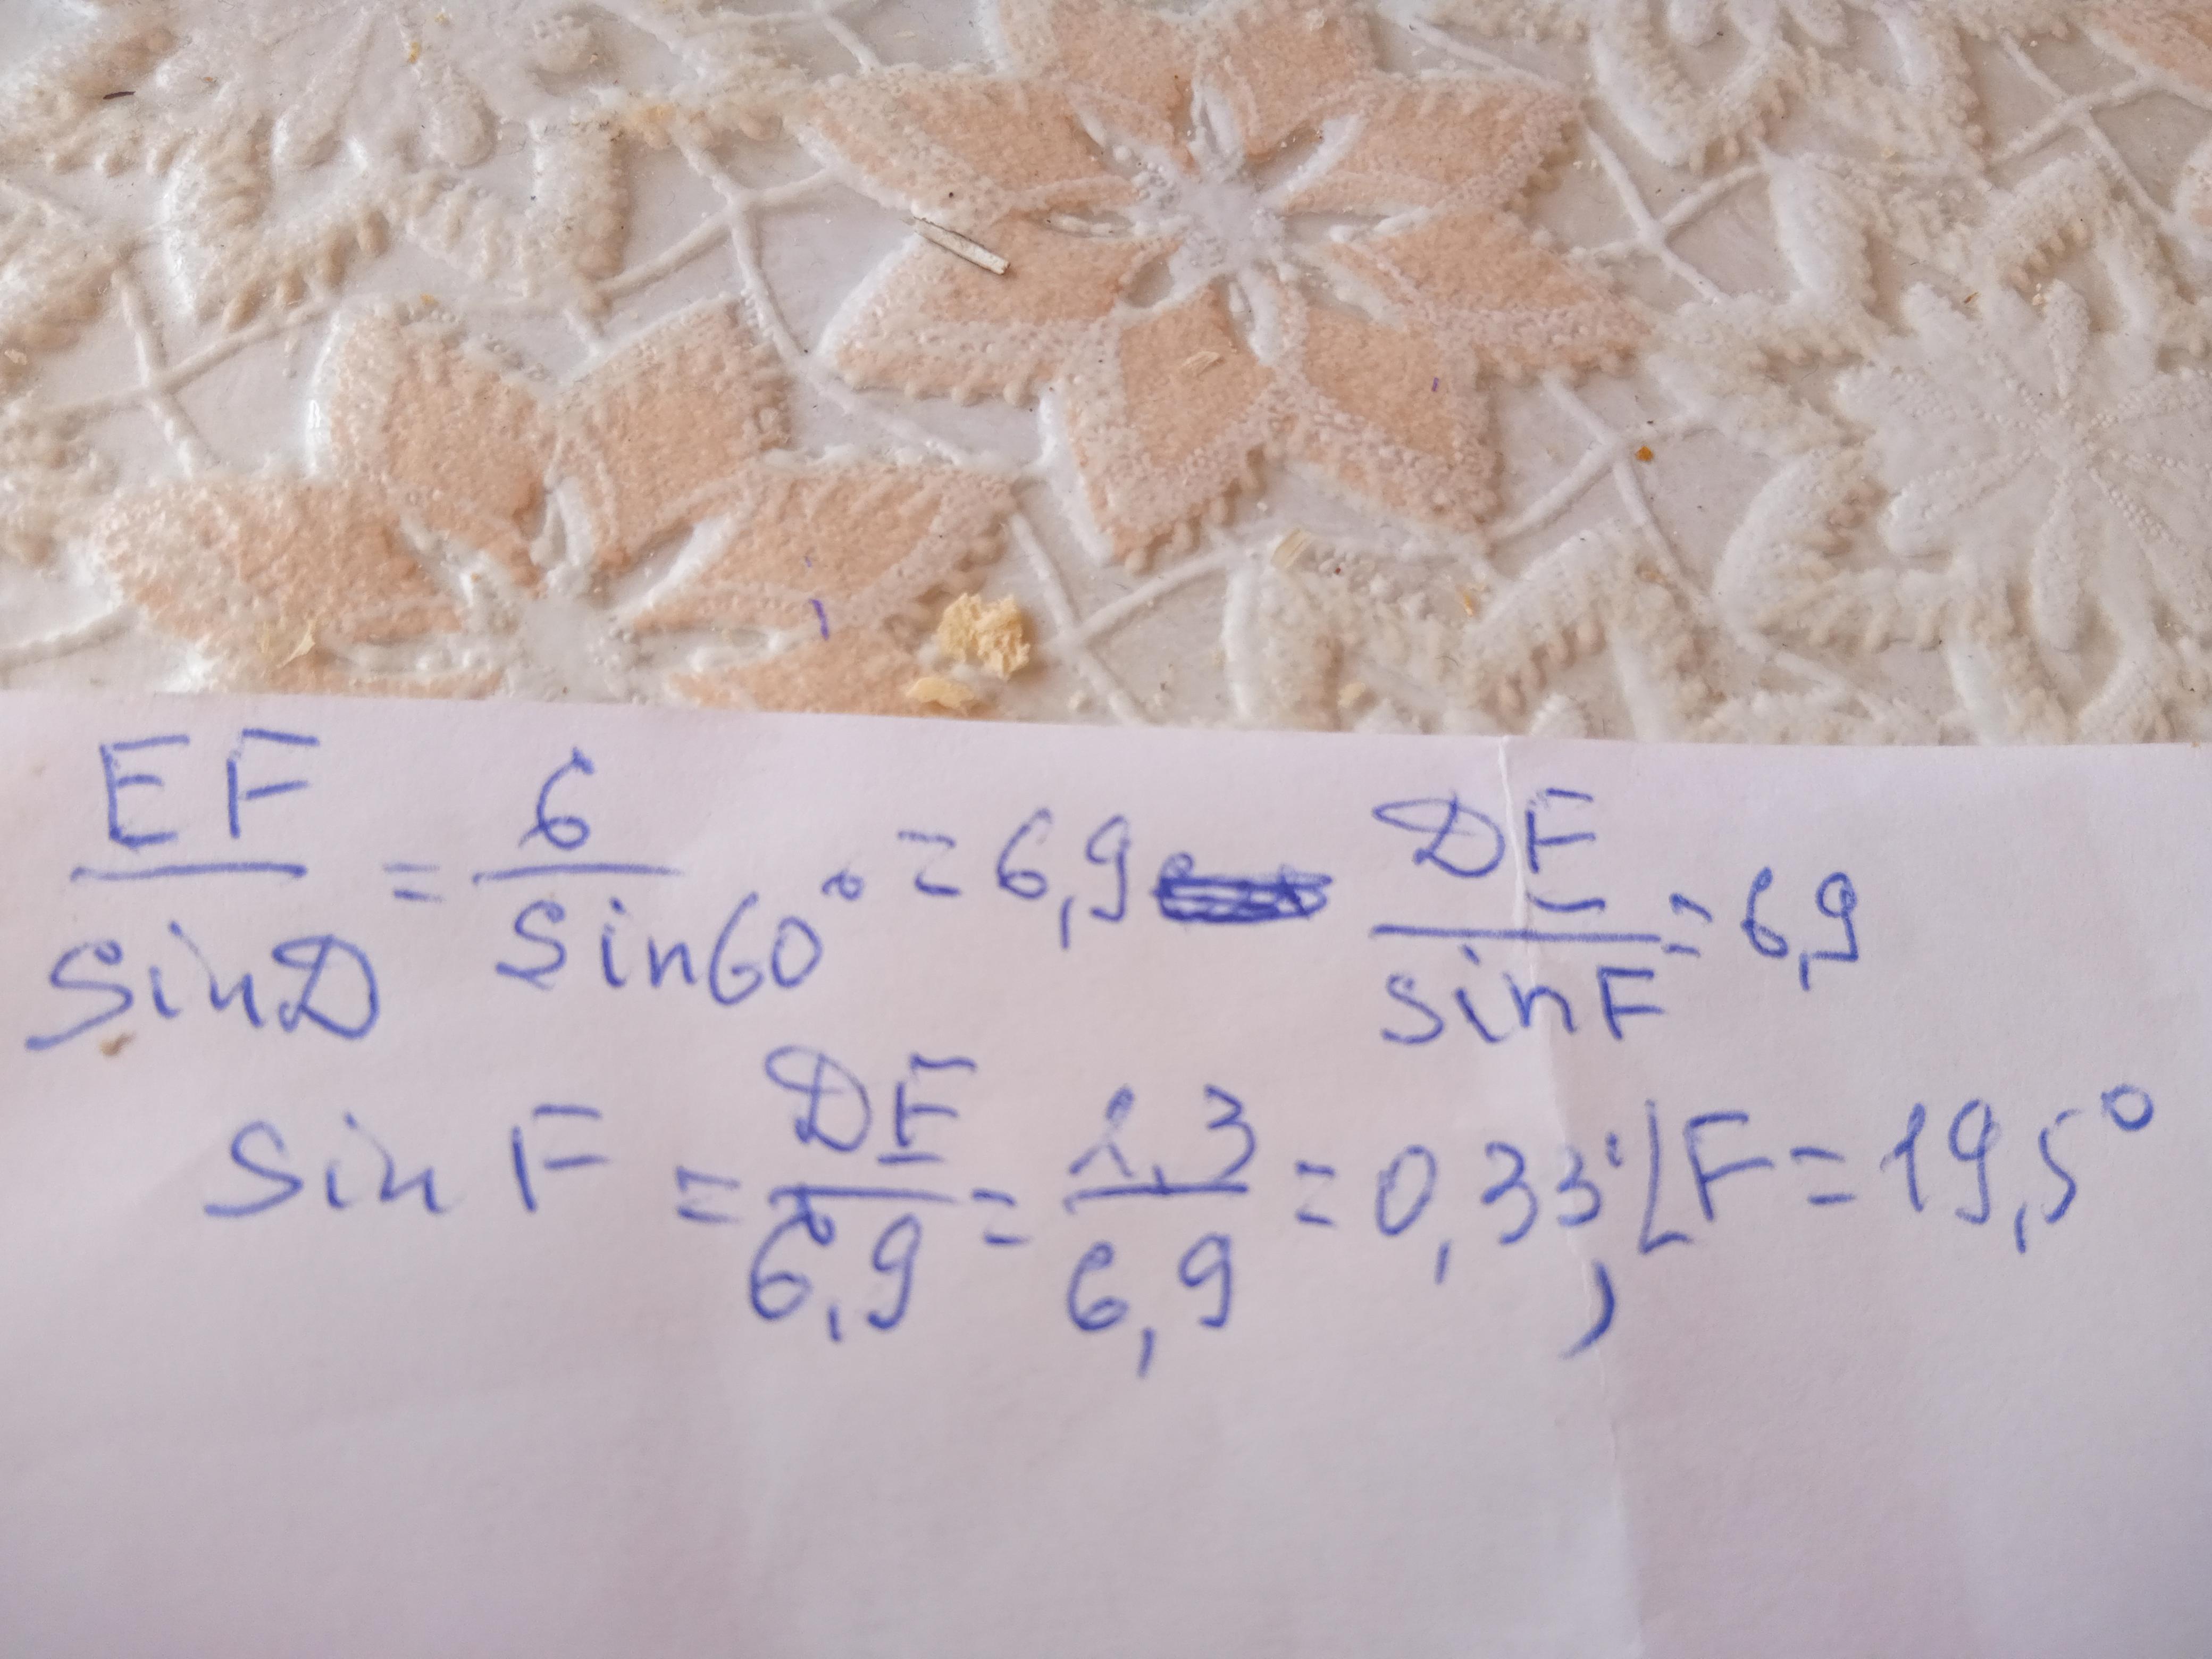 EF/sinD = 6/sin60° = 6,9 DE/sinF = 6,9
sin F = DE/6,9 = 2,3/6,9 = 0,33; ∠F = 19,5°